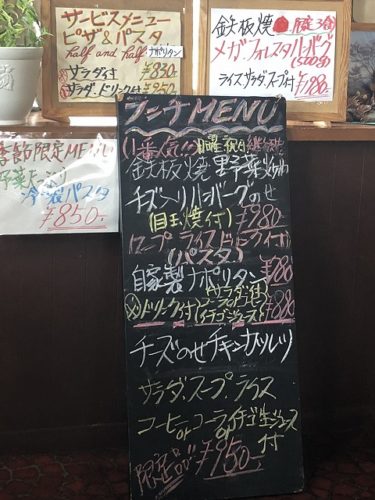 サービスメニュー
ピザ&パスタ
half and half ナポリタン
サラダ付 ¥830
サラダ.ドリンク付
鉄板焼 限定3食
メガ フォレスタハンバーグ
(500g)
ライス サラダ.スープ付 ¥1,980.
季節限定MENU
冷製パスタ
¥850-
ランチMENU
(1番人気)
鉄板焼 野菜炒め
チーズ入りハンバーグのせ
(目玉焼付) ¥980-
(スープ ライス ドリンク付)
(パスタ)
自家製ナポリタン ¥780
ドリンク付 (サラダ付 ¥880
イチゴジュース)
チーズのせチキンカツレツ
サラダ.スープ.ライス
コーヒorコーラorイチゴ生ジュース
付
限定品 ¥950-